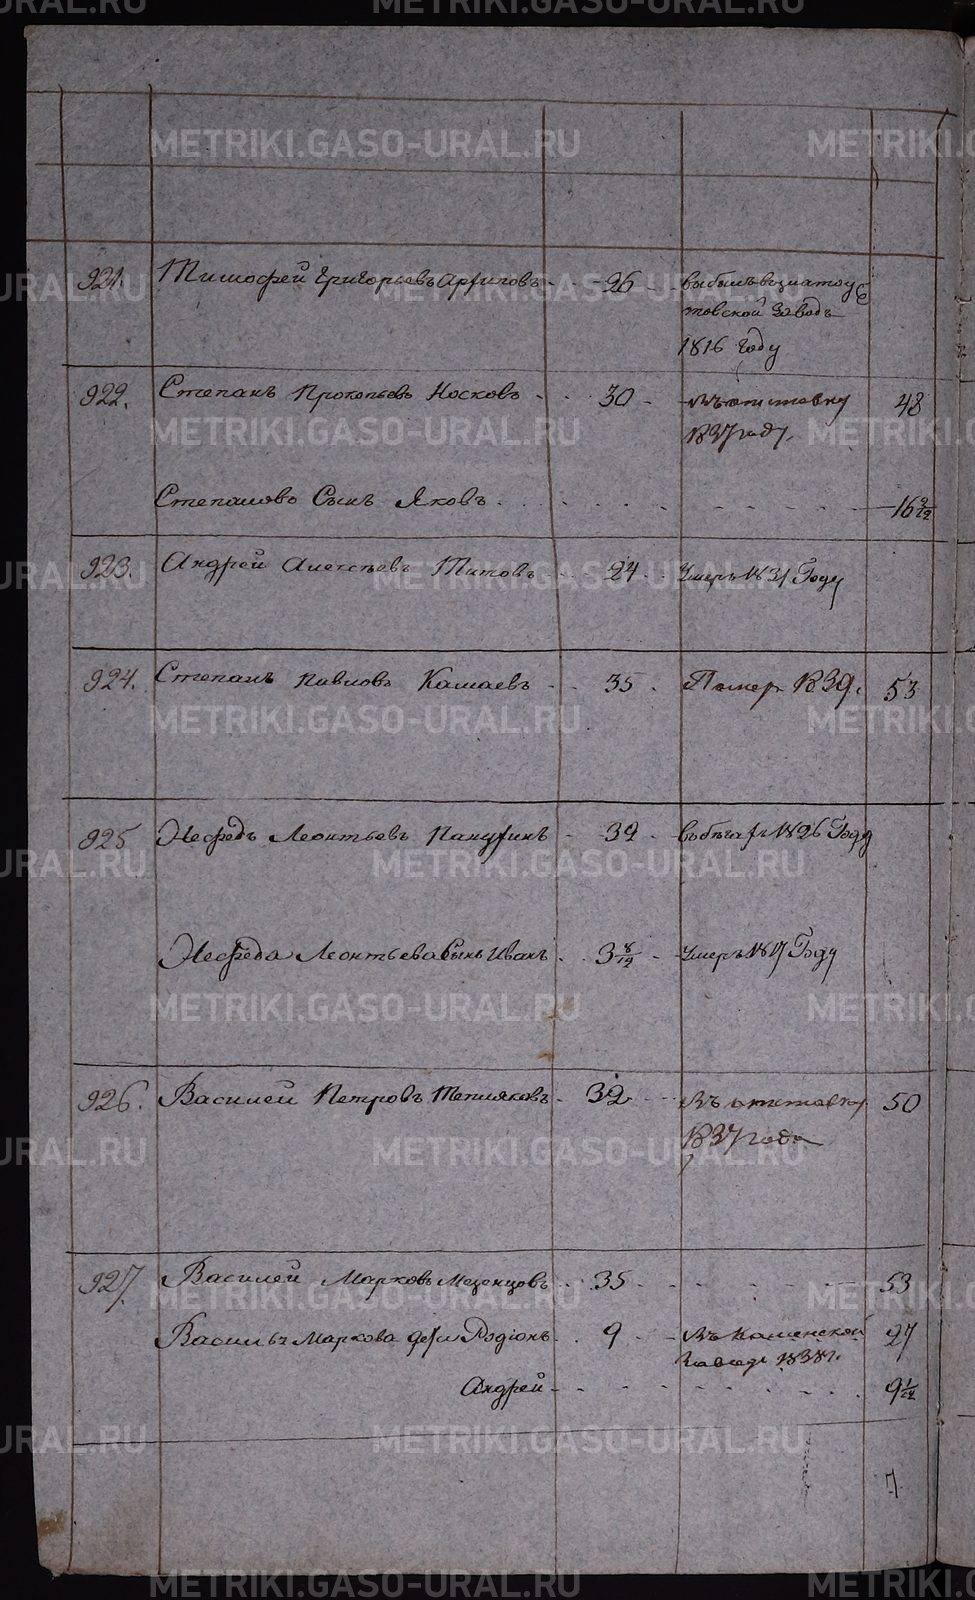 921. Тимофей Григорьевъ Арзиговъ 26 выбылъ въ златоу
товской Заводъ
1816 Году
922. Степанъ Прокопьевъ Носковъ 30 въ отставку 48
1837 году.
Степаново Сынъ Яковъ 16 9/12
923. Андрей Алексѣевъ Титовъ 24 Умеръ 1831 Году
924. Степанъ Павловъ Камаевъ 35 Помер 1839. 53
925 Леонтьевъ 39 1826 Году
Леонтьева Сынъ Иванъ 3 8/12 Умеръ 1817 Году
926. Василей Петровъ Тепляковъ 32 Въ отставку 50
1837 года
927. Василей Марковъ Мезенцовъ 35 53
Василья Маркова дѣти Родіонъ 9 Въ Каменской 27
Завод 1838 г.
Андрей 9 1/12
7
METRIKI.GASO-URAL.RU